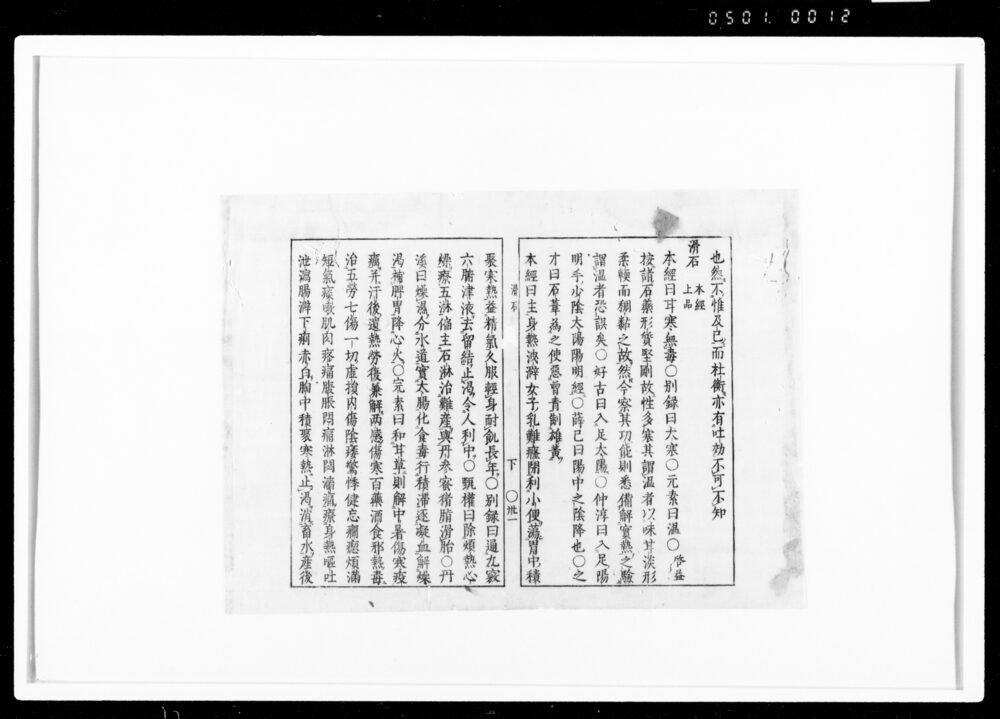 0501.0012
也然不惟及己而杜衡亦有吐効不可不知
滑石 本經上品
本經曰甘寒無毒○別録曰大寒○元素曰温○啓益
按諸石藥形質堅剛故性多寒其謂温者以味甘淡形
柔軟而稠黏之故然今察其功能則悉備解實熱之驗
謂温者恐誤矣○好古曰入足太陽○仲淳曰入足陽
明手少陰太陽陽明經○薛己曰陽中之陰降也○之
才曰石葦為之使惡曾青制雄黃
本經曰主身熱洩澼女子乳難癃閉利小便蕩胃中積
滑石
下 ○卅一
聚寒熱益精氣久服輕身耐飢長年○別録曰通九竅
六腑津液去留結止渴令人利中○甄權曰除煩熱心
燥療五淋偏主石淋治難產與丹參蜜猪脂滑胎○丹
溪曰燥濕分水道實大腸化食毒行積滯逐凝血解燥
渴補脾胃降心火○元素曰和甘草則解中暑傷寒疫
癘并汗後遺熱勞復兼解兩感傷寒百藥酒食邪熱毒
治五勞七傷一切虛損内傷陰痿驚悸健忘癇瘛煩滿
短氣痰嗽肌肉疼痛腹脹悶痛淋閟濇痛療身熱嘔吐
泄瀉腸澼下痢赤白胸中積聚寒熱止渴消畜水產後